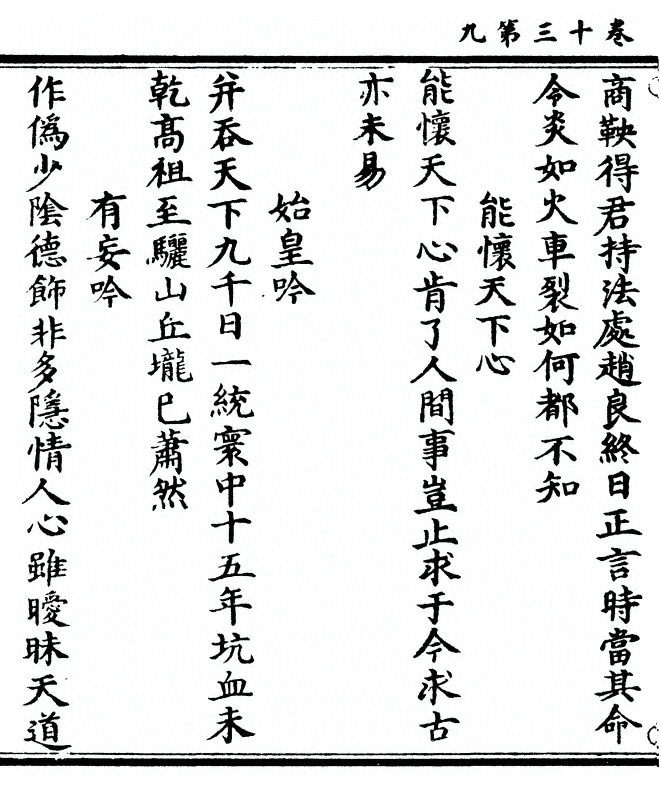 卷十三第九
商鞅得君持法處趙良終日正言時當其命
令炎如火車裂如何都不知
能懷天下心
能懷天下心肯了人間事豈止求于今求古
亦未易
始皇吟
并吞天下九千日一統寰中十五年坑血未
乾髙祖至驪山丘壠已蕭然
有妄吟
作僞少陰德飾非多隱情人心雖曖昧天道